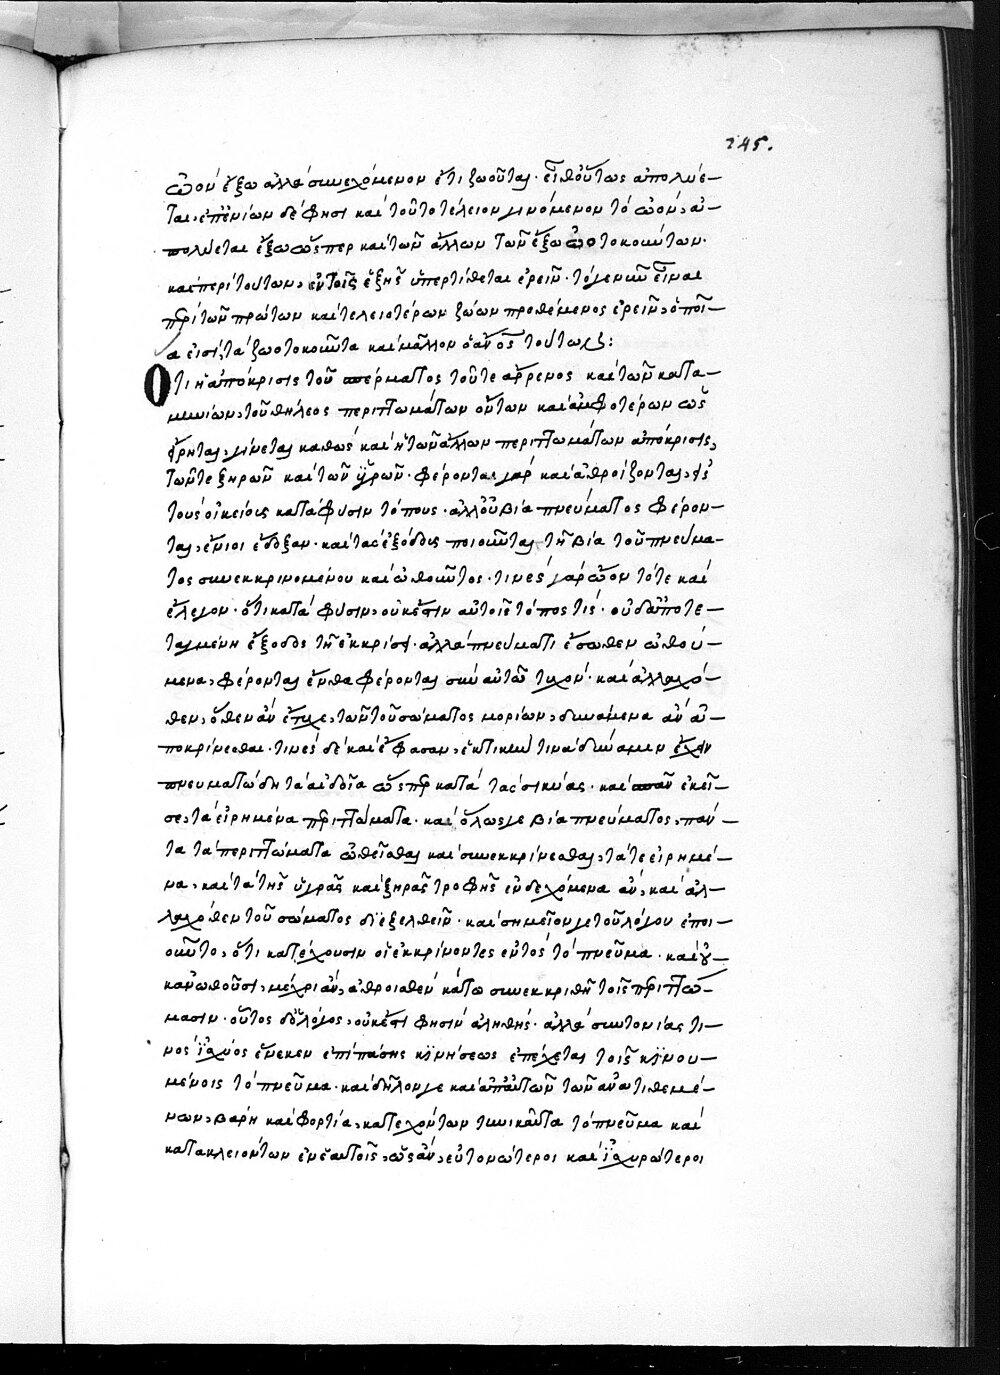 245.
ὠὸν ἔξω ἀλλὰ συνεχόμενον ἔτι ζωοῦται· εἶθ' οὕτως ἀπολύε-
ται, ἐπ' ἐνίων δέ φησι καὶ τοῦτο τέλειον γινόμενον τὸ ὠὸν, ἀ-
πολύεται ἔξω ὥσπερ καὶ τῶν ἄλλων τῶν ἔξω ὠοτοκούντων·
καὶ περὶ τούτων, ἐν τοῖς ἑξῆς ὑπερτίθεται ἐρεῖν· τὸ μὲν νῦν εἶναι
περὶ τῶν πρώτων καὶ τελειοτέρων ζώων προθέμενος ἐρεῖν, ὁποῖ-
α εἰσὶ, τὰ ζωοτοκοῦντα καὶ μᾶλλον ὁ ἄνος τούτων:
Ὅτι ἡ ἀπόκρισις τοῦ σπέρματος τοῦ τε ἄρρενος καὶ τῶν κατα-
μηνίων, τοῦ θήλεος περιττωμάτων ὄντων καὶ ἀμφοτέρων ὡς
εἴρηται, γίνεται καθὼς καὶ ἡ τῶν ἄλλων περιττωμάτων ἀπόκρισις,
τῶν τε ξηρῶν καὶ τῶν ὑγρῶν· φέρονται γὰρ καὶ ἀθροίζονται, εἰς
τοὺς οἰκείους κατὰ φύσιν τόπους· ἀλλ' οὐ βία πνεύματος φέρον-
ται, ὡς ἔνιοι ἔδοξαν· καὶ τὰς ἐξόδους ποιοῦνται τῇ βία τοῦ πνεύμα-
τος συνεκκρινομένου καὶ ὠθοῦντος· τινὲς γὰρ ὤοντό τε καὶ
ἔλεγον· ὅτι κατὰ φύσιν, οὐκ ἔστιν αὐτοῖς τόπος τίς· οὐδ' ἀποτε-
ταγμένη ἔξοδος τῇ ἐκκρίσει· ἀλλὰ πνεύματι ἔσωθεν ὠθού-
μενα, φέρονται ἔνθα φέρονται σὺν αὐτῶ τυχόν· καὶ ἀλλαχό-
θεν, ὅθεν ἂν ἔτυχε, τῶν τοῦ σώματος μορίων, δυνάμενα ἂν ἀ-
ποκρίνεσθαι· τινὲς δὲ καὶ ἔφασαν, ἑλκτικήν τινα δύναμιν ἔχειν
πνευματώδη τὰ αἰδοῖα ὥσπερ κατὰ τὰς σικύας· καὶ σπᾶν ἐκεῖ-
σε, τὰ εἰρημένα περιττώματα· καὶ ὅλως γε βία πνεύματος, πάν-
τα τὰ περιττώματα ὠθεῖσθαι καὶ συνεκκρίνεσθαι, τά τε εἰρημέ-
να, καὶ τὰ τῆς ὑγρᾶς καὶ ξηρᾶς τροφῆς ἐνδεχόμενα ἂν, καὶ ἀλ-
λαχόθεν τοῦ σώματος διεξελθεῖν· καὶ σημεῖόν γε τοῦ λόγου ἐποι-
οῦντο, ὅτι κατέχουσιν οἱ ἐκκρίνοντες ἐντὸς τὸ πνεῦμα· καὶ οὐ-
κἀνωθοῦσι, μέχρι ἂν, ἀθροισθὲν κάτω συνεκκριθῇ τοῖς περιττώ-
μασιν· οὗτος δ' ὁ λόγος, οὐκ ἔστι φησὶν ἀληθής· ἀλλὰ συντονίας τι-
νὸς ἰσχύος ἕνεκεν ἐπὶ πάσης κινήσεως ἐπέχεται τοῖς κινου-
μένοις τὸ πνεῦμα· καὶ δῆλόν γε καὶ ἀπ' αὐτῶν τῶν ἀνατιθεμέ-
νων, βάρη καὶ φορτία, κατεχόντων τηνικαῦτα τὸ πνεῦμα καὶ
κατακλειόντων ἐν ἑαυτοῖς, ὡς ἂν, εὐτονώτεροι καὶ ἰσχυρότεροι